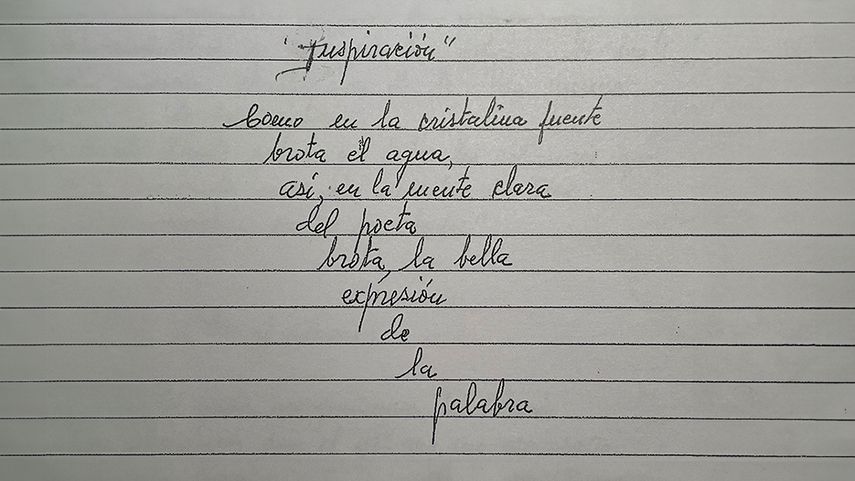 "Inspiración"
Como en la cristalina fuente
brota el agua,
así, en la mente clara
del poeta
brota, la bella
expresión
de
la
palabra